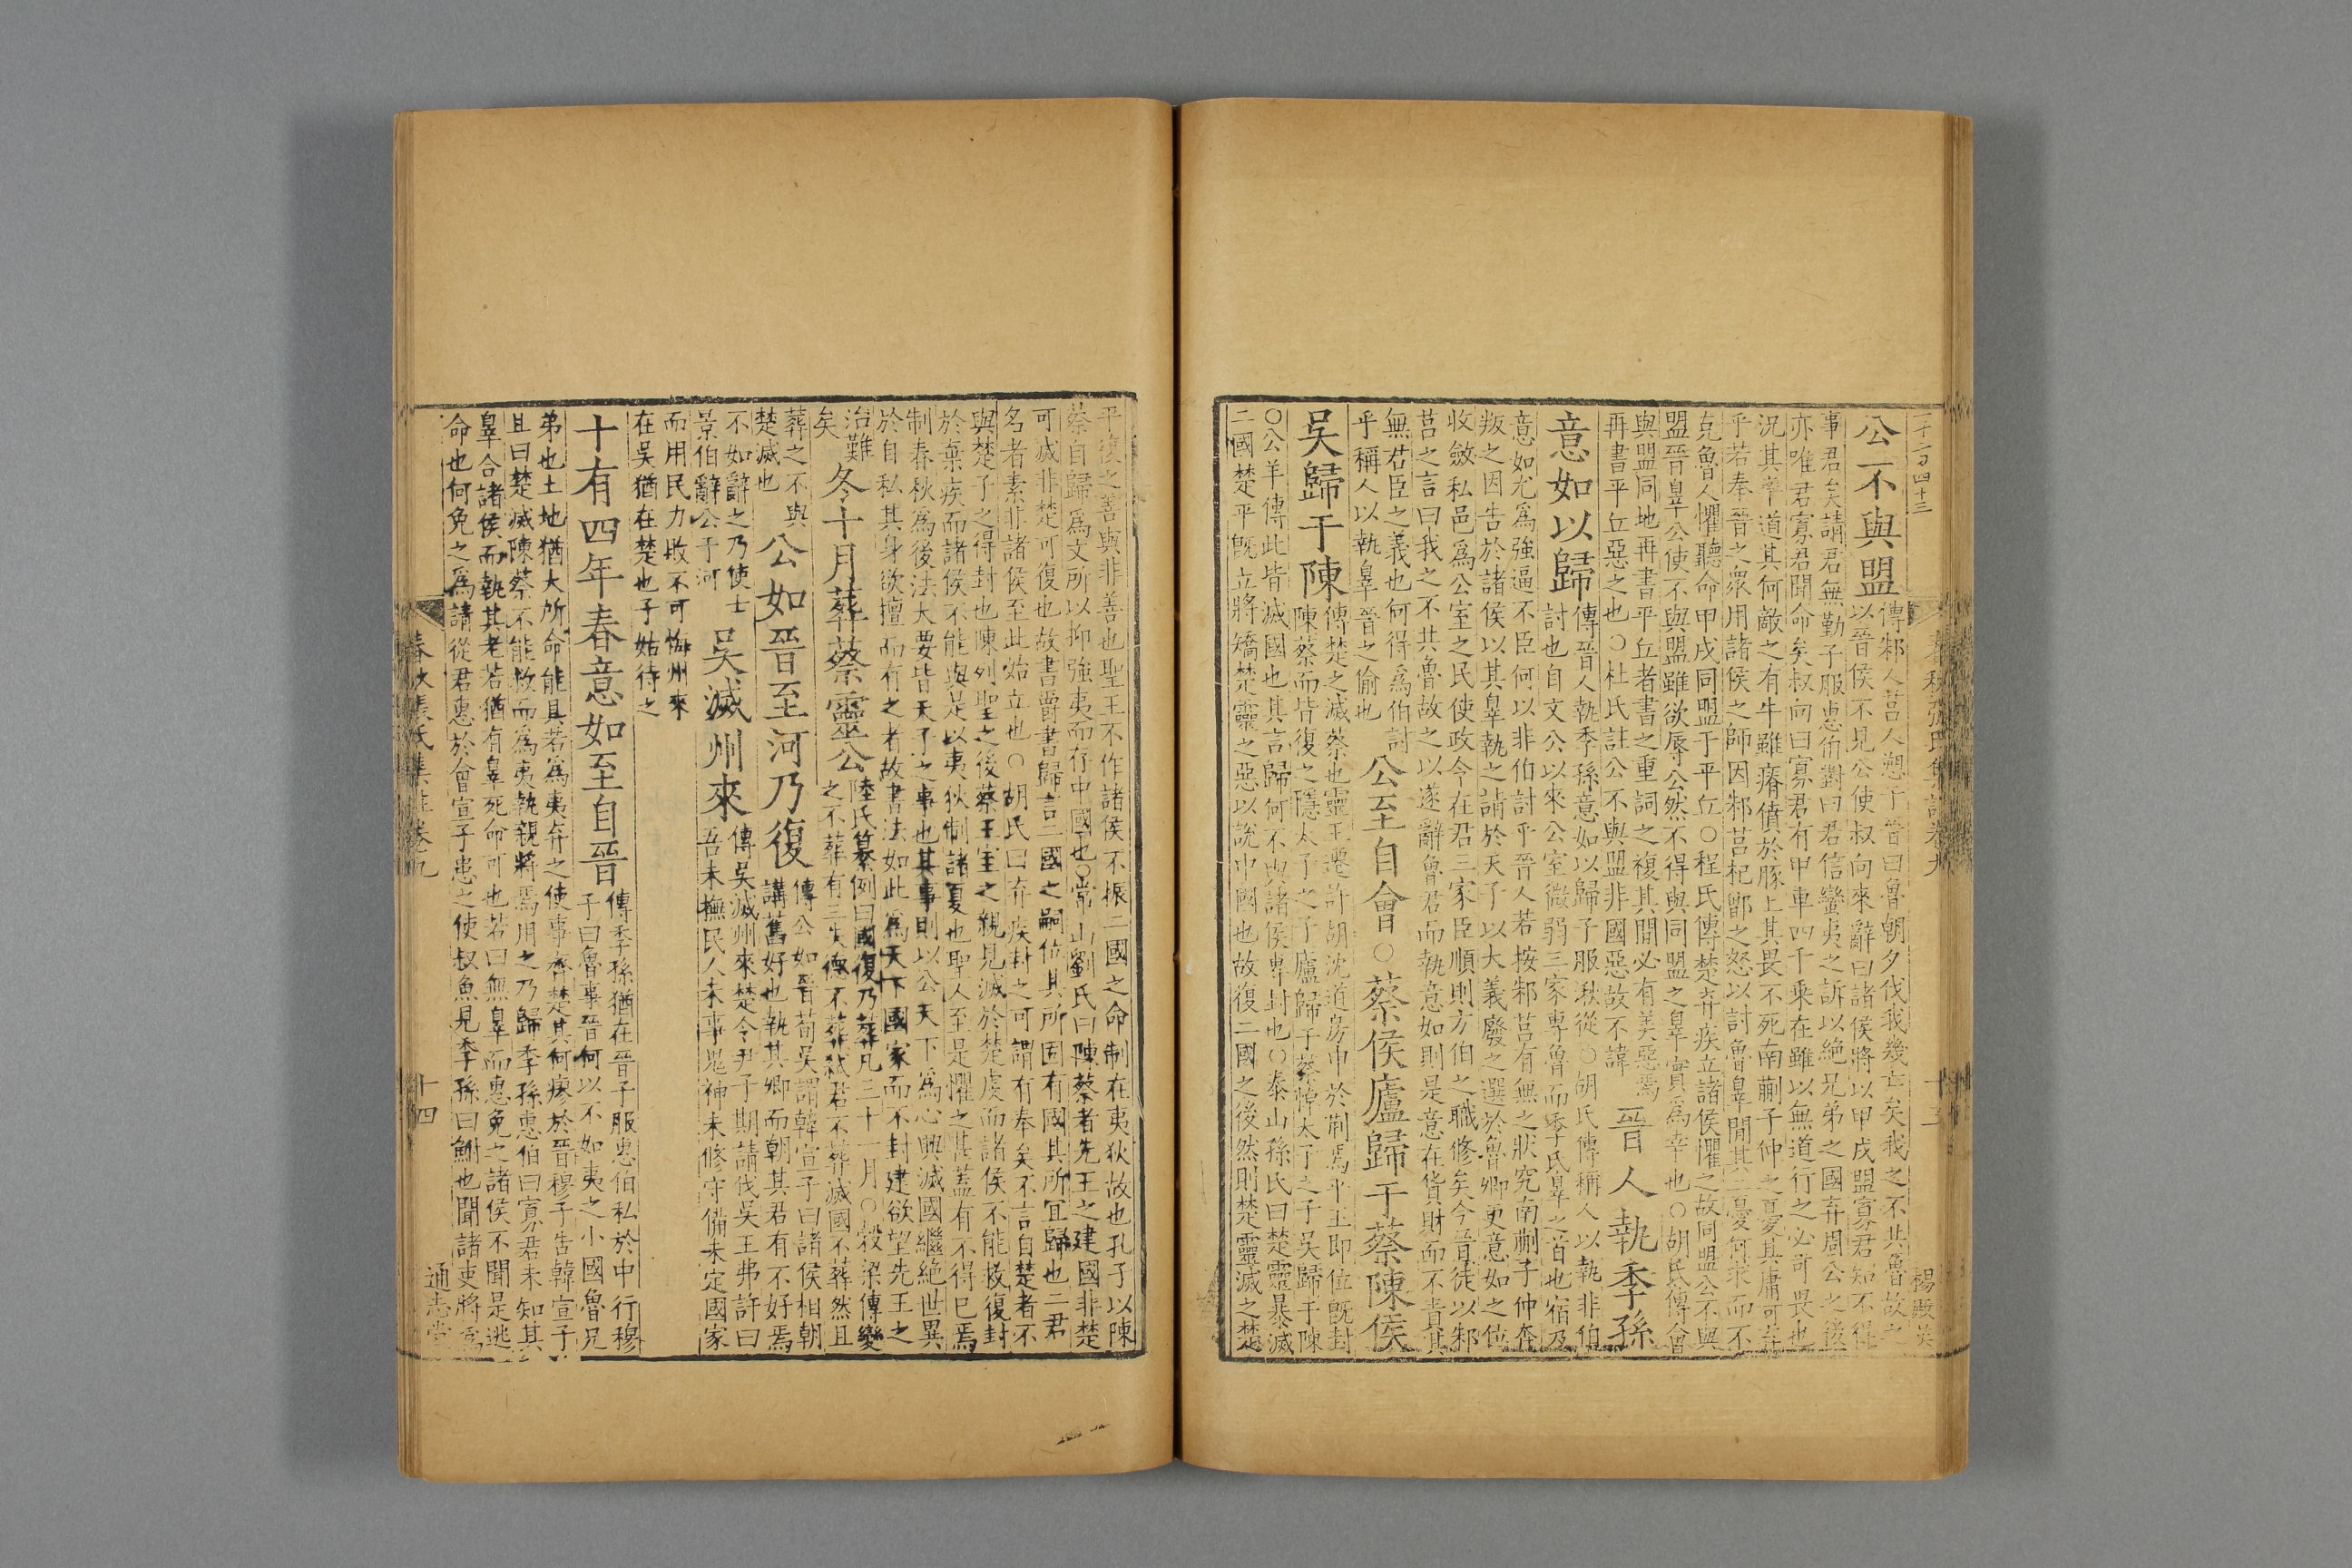 公不與盟
傳邾人莒人愬于晉曰魯朝夕伐我幾亡矣我之不共魯故之
以晉侯不見公使叔向來辭曰諸侯將以甲戌盟寡君知不得
事君矣請君無勤子服惠伯對曰君信蠻夷之訴以絕兄弟之國弃周公之後
亦唯君寡君聞命矣叔向曰寡君有甲車四千乘在雖以無道行之必可畏也
況其率道其何敵之有牛雖瘠僨於豚上其畏不死南蒯子仲之憂其庸可弃
乎若奉晉之衆用諸侯之師因邾莒杞鄫之怒以討魯辠間其二憂何求而不
克魯人懼聽命甲戌同盟于平丘○程氏傳楚弃疾立諸侯懼之故同盟公不與
盟晉辠公使不與盟雖欲辱公然不得與同盟之辠實爲幸也○胡氏傳會
與盟同地再書平丘者書之重詞之複其間必有美惡焉
再書平丘惡之也○杜氏註公不與盟非國惡故不諱
晉人執季孫
意如以歸
傳晉人執季孫意如以歸子服湫從○胡氏傳稱人以執非伯
討也自文公以來公室微弱三家專魯而季氏辠之首也宿及
意如尤爲強逼不臣何以非伯討乎晉人若按邾莒有無之狀究南蒯子仲奔
叛之因告於諸侯以其辠執之請於天子以大義廢之選於魯卿更意如之位
收斂私邑爲公室之民使政令在君三家臣順則方伯之職修矣今晉徒以邾
莒之言曰我之不共魯故之以遂辭魯君而執意如則是意在貨財而不責其
無君臣之義也何得爲伯討
乎稱人以執辠晉之偷也
公至自會○蔡侯廬歸于蔡陳侯
吳歸于陳
傳楚之滅蔡也靈王遷許胡沈道房申於荆焉平王即位旣封
陳蔡而皆復之隱太子之子廬歸于蔡悼太子之子吳歸于陳
○公羊傳此皆滅國也其言歸何不與諸侯專封也○泰山孫氏曰楚靈暴滅
二國楚平旣立將矯楚靈之惡以說中國也故復二國之後然則楚靈滅之楚
平復之善與非善也聖王不作諸侯不振二國之命制在夷狄故也孔子以陳
蔡自歸爲文所以抑強夷而存中國也○常山劉氏曰陳蔡者先王之建國非楚
可滅非楚可復也故書爵書歸言二國之嗣位其所固有國其所宜歸也二君
名者素非諸侯至此始立也○胡氏曰弃疾封之可謂有奉矣不言自楚者不
與楚子之得封也陳列聖之後蔡王室之親見滅於楚虔而諸侯不能救復封
於棄疾而諸侯不能與是以夷狄制諸夏也聖人至是懼之甚蓋有不得已焉
制春秋爲後法大要皆天子之事也其事則以公天下爲心興滅國繼絕世異
於自私其身欲擅而有之者故書法如此爲天下國家而不封建欲望先王之
治難
矣
冬十月葬蔡靈公
陸氏纂例曰國復乃葬凡三十一月○穀梁傳變
之不葬有三失德不葬弒君不葬滅國不葬然且
葬之不與
楚滅也
公如晉至河乃復
傳公如晉荀吳謂韓宣子曰諸侯相朝
講舊好也執其卿而朝其君有不好焉
不如辭之乃使士
景伯辭公于河
吳滅州來
傳吳滅州來楚令尹子期請伐吳王弗許曰
吾未撫民人未事鬼神未修守備未定國家
而用民力敗不可悔州來
在吳猶在楚也子姑待之
十有四年春意如至自晉
傳季孫猶在晉子服惠伯私於中行穆
子曰魯事晉何以不如夷之小國魯兄
弟也土地猶大所命能具若爲夷弃之使事齊楚其何瘳於晉穆子告韓宣子
且曰楚滅陳蔡不能救而爲夷執親將焉用之乃歸季孫惠伯曰寡君未知其
辠合諸侯而執其老若猶有辠死命可也若曰無辠而惠免之諸侯不聞是逃
命也何免之爲請從君惠於會宣子患之使叔魚見季孫曰鮒也聞諸吏將爲
春秋張氏集註卷九
十四
通志堂